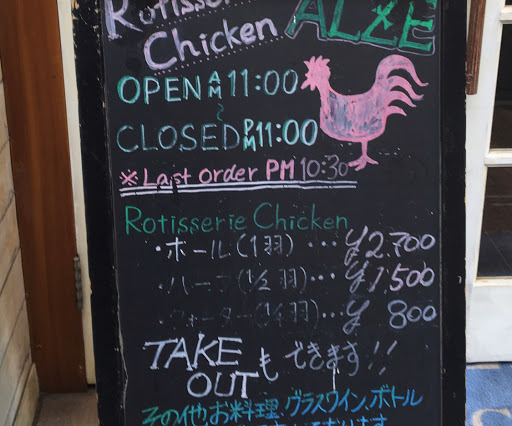 Rotisserie
Chicken ALZE
OPEN AM 11:00
~
CLOSED PM 11:00
※Last order PM 10:30
Rotisserie Chicken
・ホール(1羽)…¥2.700
・ハーフ(1/2羽)…¥1,500
・クォーター(1/4羽)…¥800
TAKE OUTもできます!!
その他、お料理、グラスワイン、ボトル